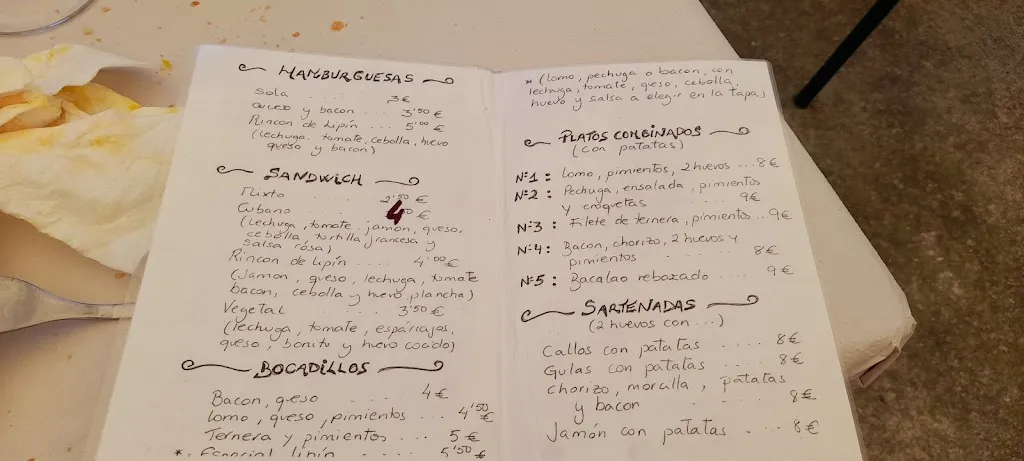 HAMBURGUESAS
Sola .... 3€
Queso y bacon .... 3'50€
Rincon de Lipín ... 5'00€
(lechuga, tomate, cebolla, huevo
queso y bacon)
SANDWICH
Mixto ..... 2'50€
Cubano ..... 4'00€
(lechuga, tomate, jamón, queso,
cebolla, tortilla francesa y
salsa rosa)
Rincon de Lipín .... 4'00€
(Jamon, queso, lechuga, tomate
bacon, cebolla y huevo plancha)
Vegetal ..... 3'50€
(lechuga, tomate, esparragos,
queso, bonito y huevo cocido)
BOCADILLOS
Bacon, queso ..... 4€
Lomo, queso, pimientos ... 4'50
Ternera y pimientos ... 5€
*. Especial Lipín ..... 5'50€
* (lomo, pechuga o bacon, con
lechuga, tomate, queso, cebolla
huevo y salsa a elegir en la tapa)
PLATOS COMBINADOS
(con patatas)
Nº1: Lomo, pimientos, 2 huevos ... 8€
Nº2: Pechuga, ensalada, pimientos
y croquetas ..... 9€
Nº3: Filete de ternera, pimientos .. 9€
Nº4: Bacon, chorizo, 2 huevos y
pimientos ..... 8€
Nº5: Bacalao rebozado .... 9€
SARTENADAS
(2 huevos con ...)
Callos con patatas .... 8€
Gulas con patatas .... 8€
Chorizo, morcilla, patatas
y bacon ..... 8€
Jamón con patatas .... 8€